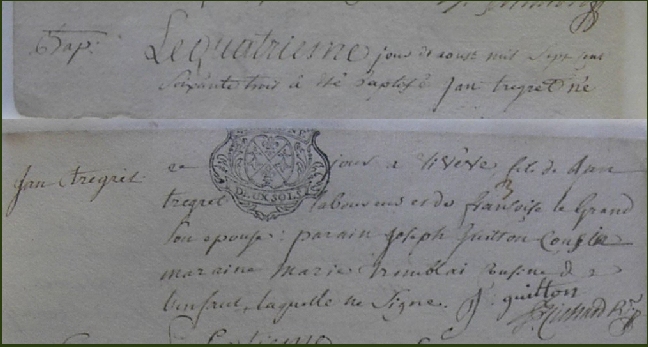 Bap.
Le quatriesme jour de aoust mil sept cent
soixante trois a été baptisé Jan tregret né
Jan tregret
ce jour a fils de
tregret laboureur et de françoise le Grand
son epouse : parain Joseph Guitton
maraine Marie tremblai cousine de
l'enfant, laquelle ne signe. J. guitton
DEUX SOLS